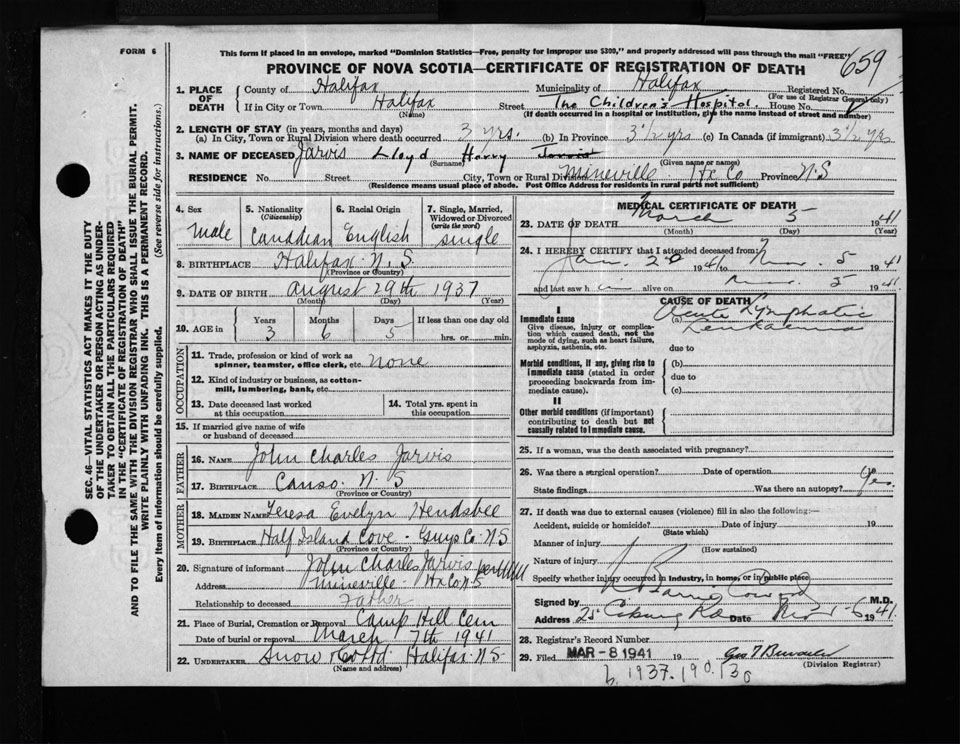 FORM 6
This form if placed in an envelope, marked "Dominion Statistics—Free, penalty for improper use $300," and properly addressed will pass through the mail "FREE"
659
PROVINCE OF NOVA SCOTIA—CERTIFICATE OF REGISTRATION OF DEATH
1. PLACE OF DEATH
County of Halifax Municipality of Halifax Registered No.
(For use of Registrar General only)
If in City or Town Halifax Street The Children's Hospital. House No.
(Name) (If death occurred in a hospital or institution, give the name instead of street and number)
2. LENGTH OF STAY (in years, months and days)
(a) In City, Town or Rural Division where death occurred 3 yrs. (b) In Province 3 1/2 yrs (c) In Canada (if immigrant) 3 1/2 yrs
3. NAME OF DECEASED Jarvis Lloyd Harry Jarvis
(Surname) (Given name or names)
RESIDENCE No. Street City, Town or Rural Division Mineville Hx Co Province N.S
(Residence means usual place of abode. Post Office Address for residents in rural parts not sufficient)
SEC. 46—VITAL STATISTICS ACT MAKES IT THE DUTY
OF THE UNDERTAKER OR PERSON ACTING AS UNDERTAKER TO OBTAIN ALL THE PARTICULARS REQUIRED
IN THE "CERTIFICATE OF REGISTRATION OF DEATH"
AND TO FILE THE SAME WITH THE DIVISION REGISTRAR WHO SHALL ISSUE THE BURIAL PERMIT.
WRITE PLAINLY WITH UNFADING INK. THIS IS A PERMANENT RECORD.
Every item of information should be carefully supplied. (See reverse side for instructions.)
4. Sex
Male
5. Nationality
(Citizenship)
Canadian
6. Racial Origin
English
7. Single, Married, Widowed or Divorced
(write the word)
single
8. BIRTHPLACE Halifax N.S.
(Province or Country)
9. DATE OF BIRTH August 29th 1937
(Month) (Day) (Year)
10. AGE in Years Months Days If less than one day old
3 6 5 hrs. or min.
OCCUPATION
11. Trade, profession or kind of work as spinner, teamster, office clerk, etc. none
12. Kind of industry or business, as cotton-mill, lumbering, bank, etc.
13. Date deceased last worked at this occupation
14. Total yrs. spent in this occupation
15. If married give name of wife or husband of deceased
FATHER
16. NAME John Charles Jarvis
17. BIRTHPLACE Canso N.S
(Province or Country)
MOTHER
18. MAIDEN NAME Teresa Evelyn Hendsbee
19. BIRTHPLACE Half Island Cove - Guys Co. N.S
(Province or Country)
20. Signature of informant John Charles Jarvis per
Address Mineville Hx Co N.S
Relationship to deceased Father
21. Place of Burial, Cremation or Removal Camp Hill Cem
Date of burial or removal March 7th 1941
22. UNDERTAKER Snow & Co Ltd Halifax N.S.
(Name and address)
MEDICAL CERTIFICATE OF DEATH
23. DATE OF DEATH March 5 1941
(Month) (Day) (Year)
24. I HEREBY CERTIFY that I attended deceased from:
1941 to Mar. 5 1941
and last saw him alive on Mar. 5 1941.
CAUSE OF DEATH
I
Immediate cause (a) Acute Lymphatic Leukaemia
Give disease, injury or complication which caused death, not the mode of dying, such as heart failure, asphyxia, asthenia, etc.
due to
Morbid conditions, if any, giving rise to immediate cause (stated in order proceeding backwards from immediate cause).
(b)
due to
(c)
II
Other morbid conditions (if important) contributing to death but not causally related to immediate cause.
25. If a woman, was the death associated with pregnancy?
26. Was there a surgical operation? Date of operation
State findings Was there an autopsy? Yes.
27. If death was due to external causes (violence) fill in also the following:—
Accident, suicide or homicide? Date of injury 19
(State which)
Manner of injury
(How sustained)
Nature of injury
Specify whether injury occurred in industry, in home, or in public place
Signed by N Barrie Coward M.D.
Address 25 Date Mar 6 1941.
28. Registrar's Record Number
29. Filed MAR -8 1941 19 Geo T
(Division Registrar)
b. 1937. 190.